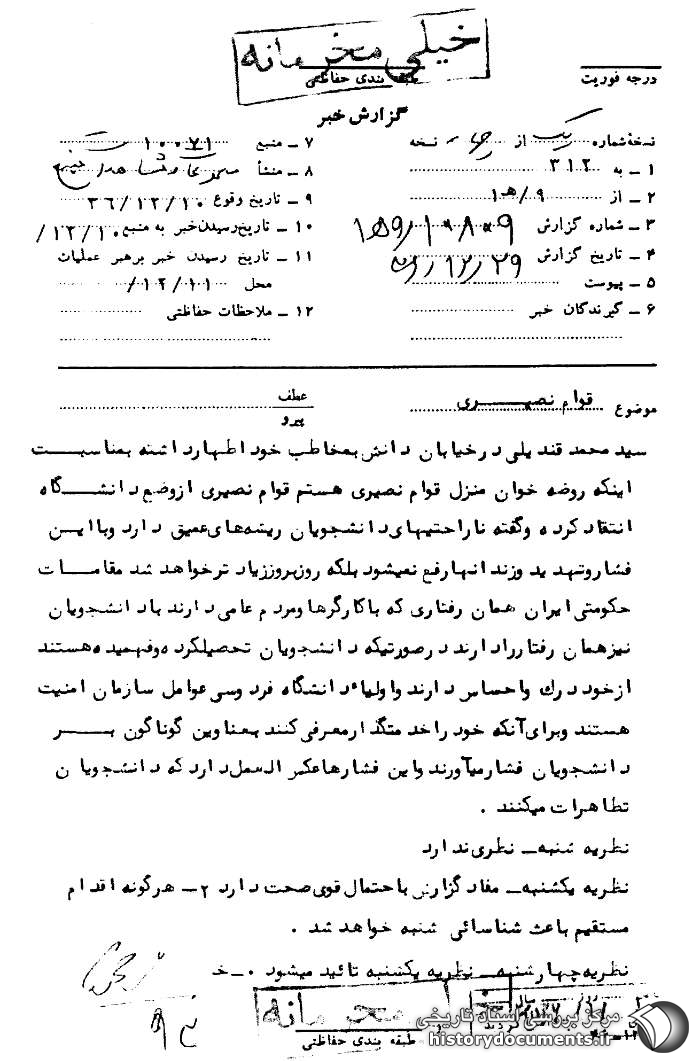 خیلی محرمانه
طبقه بندی حفاظتی
درجه فوریت
گزارش خبر
نسخهٔ شماره یک از چهار نسخه
۱ ــ به ۳۱۲
۲ ــ از ۹/هـ۱
۳ ــ شماره گزارش
۴ ــ تاریخ گزارش
۵ ــ پیوست
۶ ــ گیرندگان خبر
۷ ــ منبع ۱۰۰۷۱
۸ ــ منشأ
۹ ــ تاریخ وقوع ۳۶/۱۲/۱۰
۱۰ ــ تاریخ رسیدن خبر به منبع ۱۲/۱۰/
۱۱ ــ تاریخ رسیدن خبر برهبر عملیات
محل ۱۲/۱۱/
۱۲ ــ ملاحظات حفاظتی
موضوع قوام نصیری
عطف
پیرو
سید محمد قندیلی در خیابان دانش بمخاطب خود اظهار داشته بمناسبت
اینکه روضه خوان منزل قوام نصیری هستم قوام نصیری از وضع دانشگاه
انتقاد کرده وگفته ناراحتیهای دانشجویان ریشه‌های عمیق دارد وبا این
فشار وتهدید وزندانها رفع نمیشود بلکه روزبروز زیاد تر خواهد شد مقامات
حکومتی ایران همان رفتاری که با کارگرها ومردم عامی دارند با دانشجویان
نیز همان رفتار را دارند در صورتیکه دانشجویان تحصیلکرده وفهمیده هستند
از خود درك واحساس دارند واولیاء دانشگاه فردوسی عوامل سازمان امنیت
هستند وبرای آنکه خود را خدمتگذار معرفی کنند بعناوین گوناگون بر
دانشجویان فشار میآورند واین فشارها عکس العمل دارد که دانشجویان
تظاهرات میکنند .
نظریه شنبه ــ نظری ندارد
نظریه یکشنبه ــ مفاد گزارش با احتمال قوی صحت دارد ۲ ــ هرگونه اقدام
مستقیم باعث شناسائی شنبه خواهد شد .
نظریه چهارشنبه ــ نظریه یکشنبه تائید میشود .
محرمانه
طبقه بندی حفاظتی
مرکز بررسی اسناد تاریخی
historydocuments.ir